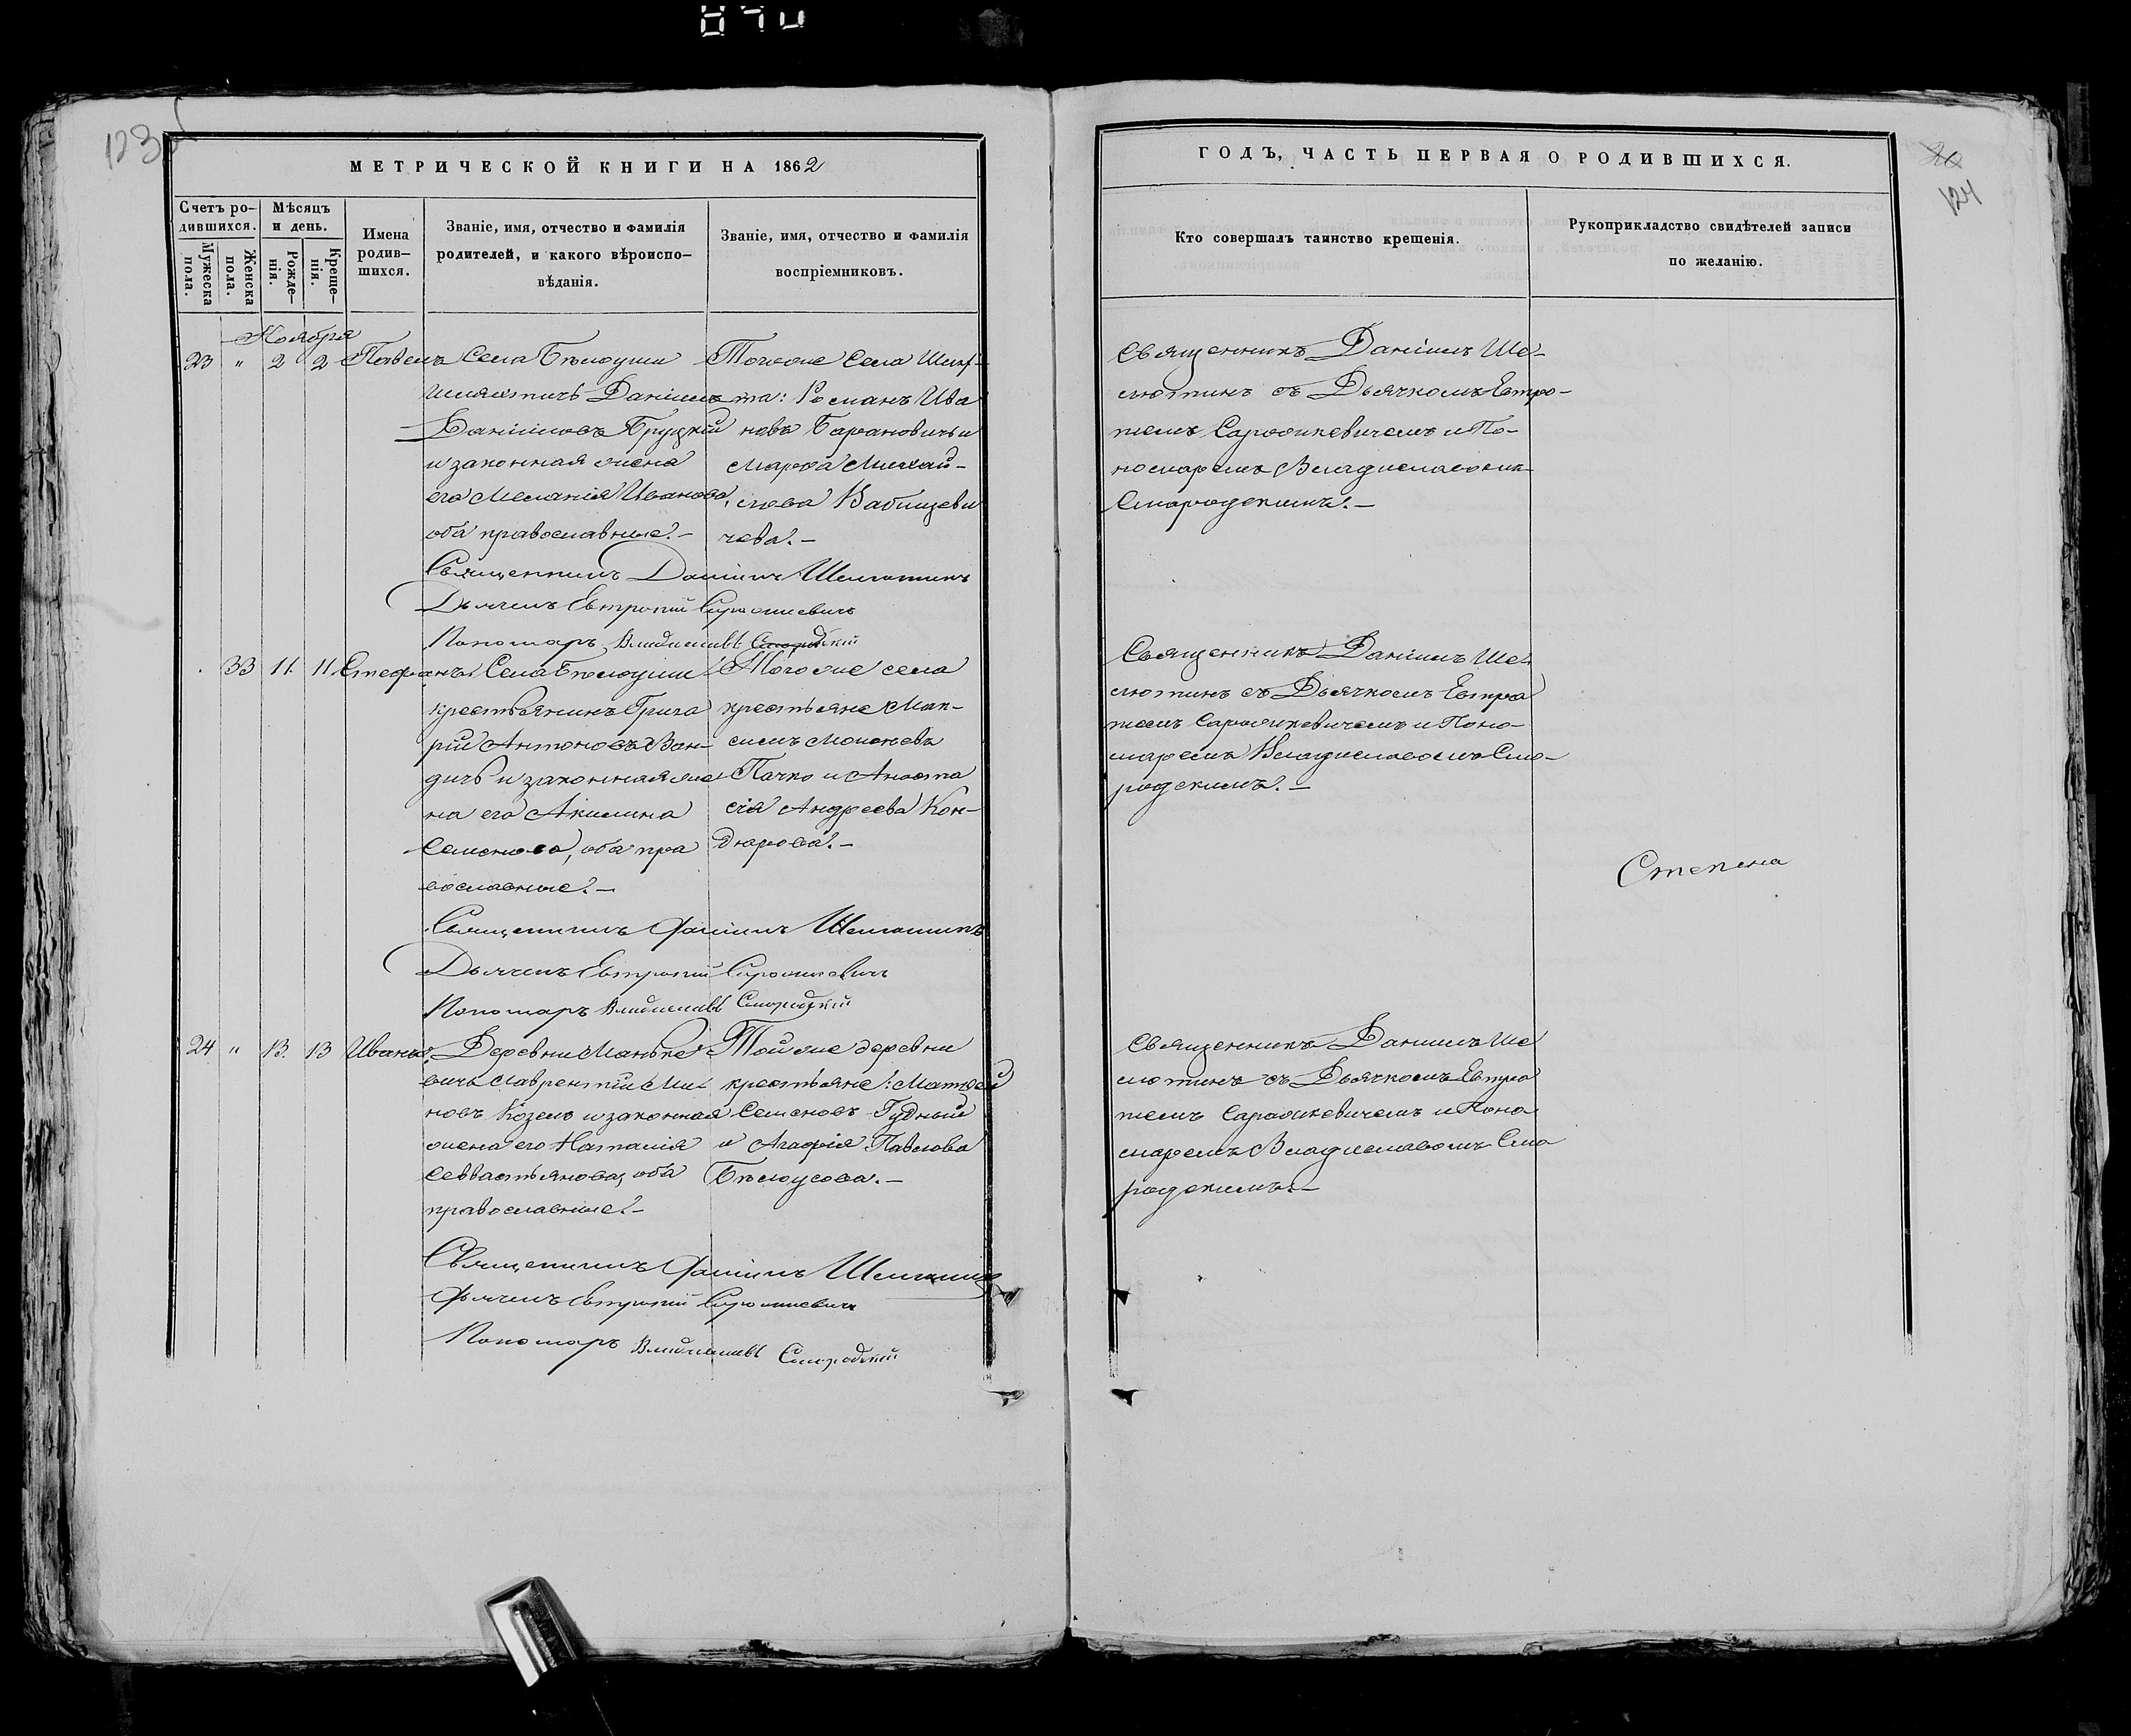 123
МЕТРИЧЕСКОЙ КНИГИ НА 1862
Счетъ ро-
дившихся.
Мѣсяцъ
и день.
Мужеска
пола.
Женска
пола.
Рожде-
нія.
Креще-
нія.
Имена
родив-
шихся.
Званіе, имя, отчество и фамилія
родителей, и какого вѣроиспо-
вѣданія.
Званіе, имя, отчество и фамилія
воспріемниковъ.
Ноября
23 " 2 2 Павелъ
Села Бѣлоуши
шляхтичъ Даніилъ
Даніиловъ Бруцкій
и законная жена
его Меланія Иванова,
оба православные.—
Тогоже села
Романъ Ива
новъ Барановичъ и
Марѳа Михай-
лова Вабищеви
чева.—
Священникъ Даніилъ Шелютинъ
Дьячекъ Евтропій
Пономарь Владиславъ
33 11. 11 Стефанъ.
Села Бѣлоуши
крестьянинъ Григо
рій Антоновъ Ван-
дичъ и законная же
на его Акилина
Семенова, оба пра
вославные.—
Тогоже села
крестьяне Мак-
симъ
Пачко и Анаста
сія Андреева Кон-
дюрова.—
Священникъ Даніилъ Шелютинъ
Дьячекъ Евтропій
Пономарь Владиславъ Смородскій
24 " 13. 13 Иванъ.
Деревни Маньке-
вичъ Лаврентій Ми-
новъ Козелъ и законная
жена его Наталія
Севвастьянова, оба
православные.—
Тойже деревни
крестьяне: Матѳей
Семеновъ Гудный
и Агафія Павлова
Бѣлоусова.—
Священникъ Даніилъ Шелютинъ
Дьячекъ Евтропій
Пономарь Владиславъ Смородскій
ГОДЪ, ЧАСТЬ ПЕРВАЯ О РОДИВШИХСЯ.
124
Кто совершалъ таинство крещенія.
Рукоприкладство свидѣтелей записи
по желанію.
Священникъ Даніилъ Ше-
лютинъ съ Дьячкомъ Евтро-
піемъ и По-
номаремъ Владиславомъ
Смородскимъ.—
Священникъ Даніилъ Ше-
лютинъ съ Дьячкомъ Евтро
піемъ и Поно-
маремъ Владиславомъ Смо-
родскимъ.—
Степена
Священникъ Даніилъ Ше
лютинъ съ Дьячкомъ Евтро
піемъ и Поно
маремъ Владиславомъ Смо
родскимъ.—